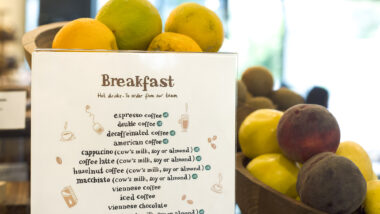 Breakfast
Hot drinks - To order from our team
espresso coffee
double coffee
decaffeinated coffee
american coffee
cappuccino (cow's milk, soy or almond)
coffee latte (cow's milk, soy or almond)
hazelnut coffee (cow's milk, soy or almond)
macchiato (cow's milk, soy or almond)
viennese coffee
iced coffee
viennese chocolate